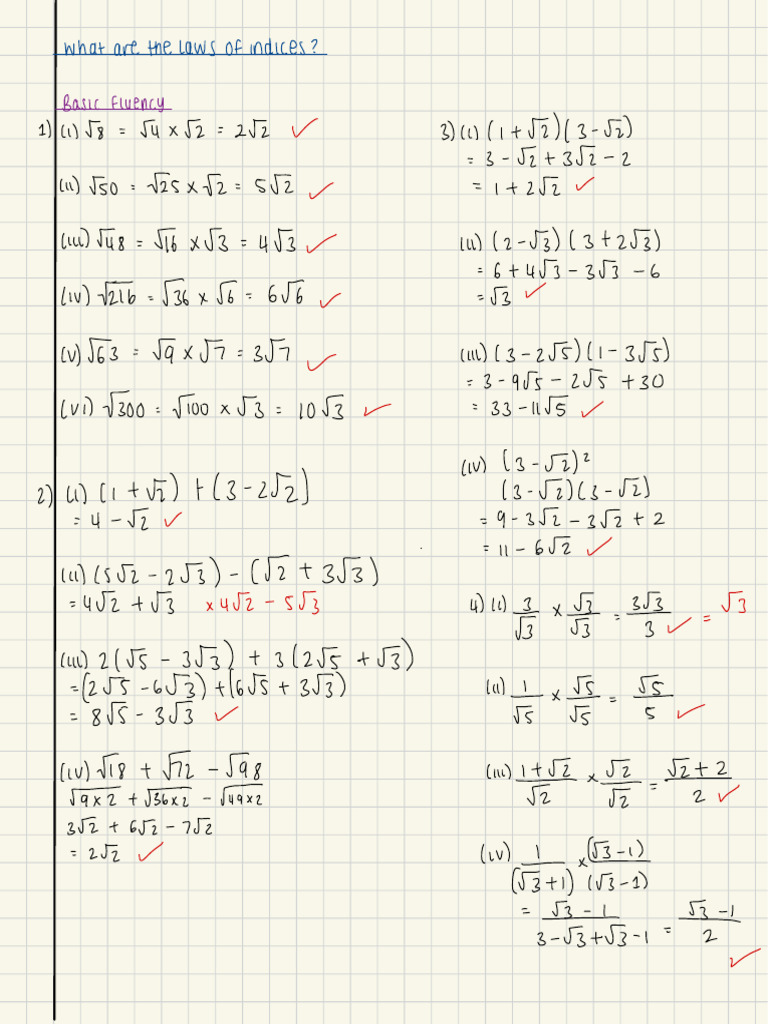 What are the laws of indices?
Basic Fluency
1) (i) √8 = √4 × √2 = 2√2 ✓
(ii) √50 = √25 × √2 = 5√2 ✓
(iii) √48 = √16 × √3 = 4√3 ✓
(iv) √216 = √36 × √6 = 6√6 ✓
(v) √63 = √9 × √7 = 3√7 ✓
(vi) √300 = √100 × √3 = 10√3 ✓
2) (i) (1 + √2) + (3 - 2√2)
= 4 - √2 ✓
(ii) (5√2 - 2√3) - (√2 + 3√3)
= 4√2 + √3 × 4√2 - 5√3
(iii) 2(√5 - 3√3) + 3(2√5 + √3)
= (2√5 - 6√3) + (6√5 + 3√3)
= 8√5 - 3√3 ✓
(iv) √18 + √72 - √98
√9×2 + √36×2 - √49×2
3√2 + 6√2 - 7√2
= 2√2 ✓
3) (i) (1 + √2)(3 - √2)
= 3 - √2 + 3√2 - 2
= 1 + 2√2 ✓
(ii) (2 - √3)(3 + 2√3)
= 6 + 4√3 - 3√3 - 6
= √3 ✓
(iii) (3 - 2√5)(1 - 3√5)
= 3 - 9√5 - 2√5 + 30
= 33 - 11√5 ✓
(iv) (3 - √2)²
(3 - √2)(3 - √2)
= 9 - 3√2 - 3√2 + 2
= 11 - 6√2 ✓
4) (i) 3/√3 × √3/√3 = 3√3/3 ✓ = √3
(ii) 1/√5 × √5/√5 = √5/5 ✓
(iii) 1+√2/√2 × √2/√2 = √2+2/2 ✓
(iv) 1/(√3+1) × (√3-1)/(√3-1)
= √3-1/3-√3+√3-1 = √3-1/2 ✓